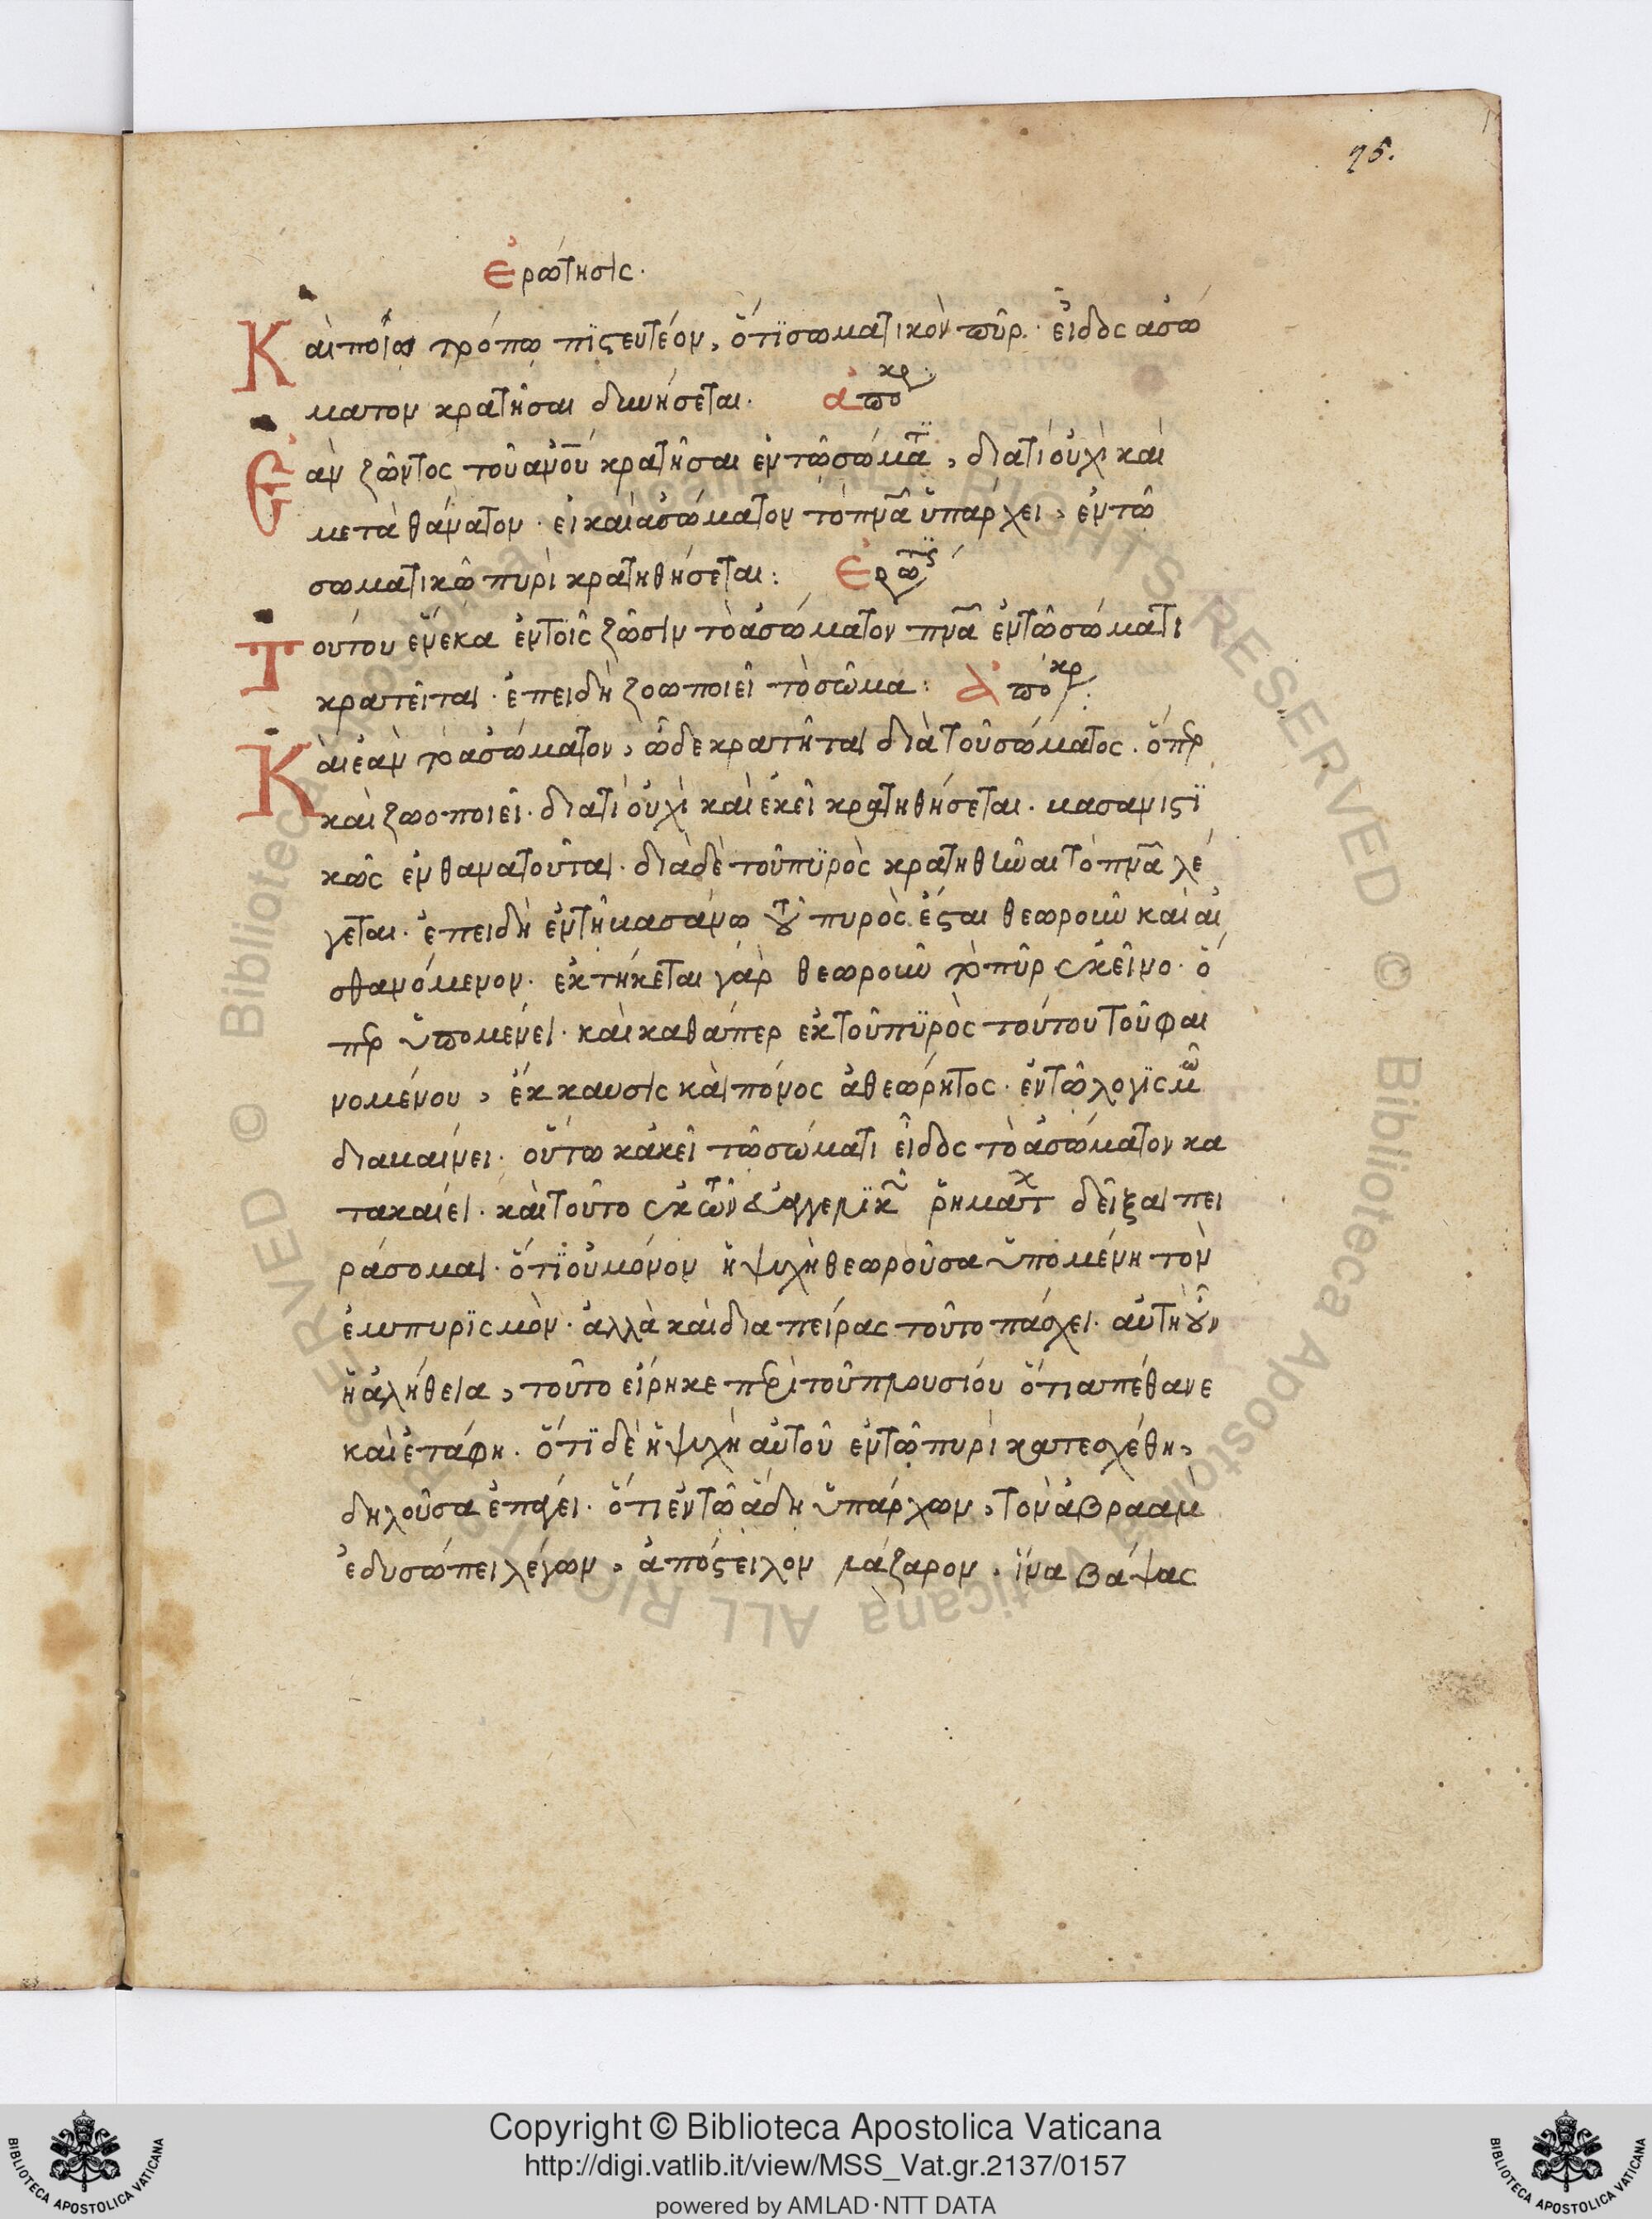 75.
ἐρώτησις.
Καὶ ποίω τρόπω πϊστευτέον, ὅτϊ σωματικὸν πῦρ. εἶδος ἀσώ
ματον κρατῆσαι δυνήσεται. ἀποκρ
Ἐὰν ζῶντος τοῦ ἀνου κρατῆσαι ἐν τῶ σώματϊ, διατὶ οὐχὶ καὶ
μετὰ θάνατον. εἰ καὶ ἀσώματον τὸ πνα ὑπάρχει, ἐν τῶ
σωματικῶ πυρὶ κρατηθήσεται: Ἐρωτϊς
Τούτου ἕνεκα ἐν τοῖς ζῶσιν τὸ ἀσώματον πνα ἐν τῶ σώματι
κρατεῖται. ἐπειδὴ ζοωποιεῖ τὸ σῶμα: ἀποκρ:
Καὶ ἐὰν τὸ ἀσώματον, ὧδε κρατῆται διὰ τοῦ σώματος. ὅπερ
καὶ ζωοποιεῖ. διατὶ οὐχὶ καὶ ἐκεῖ κρατηθήσεται. κασανιστϊ
κῶς ἐνθανατοῦται. διὰ δὲ τοῦ πϋρὸς κρατηθῆναι τὸ πνα λέ
γεται. ἐπειδὴ ἐν τῆ κασάνω τοῦ πυρὸς ἔσται θεωροῦν καὶ αἰ
σθανόμενον. ἐκτήκεται γὰρ θεωροῦν τὸ πῦρ ἐκεῖνο. ὅ
περ ὑπομένει. καὶ καθάπερ ἐκ τοῦ πϋρὸς τούτου τοῦ φαι
νομένου, ἔκκαυσις καὶ πόνος ἀθεώρητος. ἐν τῶ λογϊσμῶ
διακαίνει. οὕτω κἀκεῖ τῶ σώματι εἶδος τὸ ἀσώματον κα
τακαίει. καὶ τοῦτο ἐκ τῶν εὐαγγελϊκῶν ῥημάτων δεῖξαι πει
ράσομαι. ὅτϊ οὐ μόνον ἡ ψυχὴ θεωροῦσα ὑπομένη τὸν
ἐμπυρϊσμὸν. ἀλλὰ καὶ δια πείρας τοῦτο πάσχει. αὐτὴ οὖν
ἡ ἀλήθεια, τοῦτο εἴρηκε περὶ τοῦ πλουσίου ὅτι ἀπέθανε
καὶ ἐτάφη. ὅτϊ δὲ ἡ ψυχὴ αὐτοῦ ἐν τῶ πυρὶ κατεσχέθη,
δηλοῦσα ἐπάγει. ὅτι ἐν τῶ ἅδη ὑπάρχων, τὸν ἀβραὰμ
ἐδυσώπει λέγων, ἀπόστειλον λάζαρον, ἵνα βάψας
© Biblioteca Apostolica Vaticana ALL RIGHTS RESERVED
Copyright © Biblioteca Apostolica Vaticana
http://digi.vatlib.it/view/MSS_Vat.gr.2137/0157
powered by AMLAD·NTT DATA
BIBLIOTECA APOSTOLICA VATICANA
BIBLIOTECA APOSTOLICA VATICANA